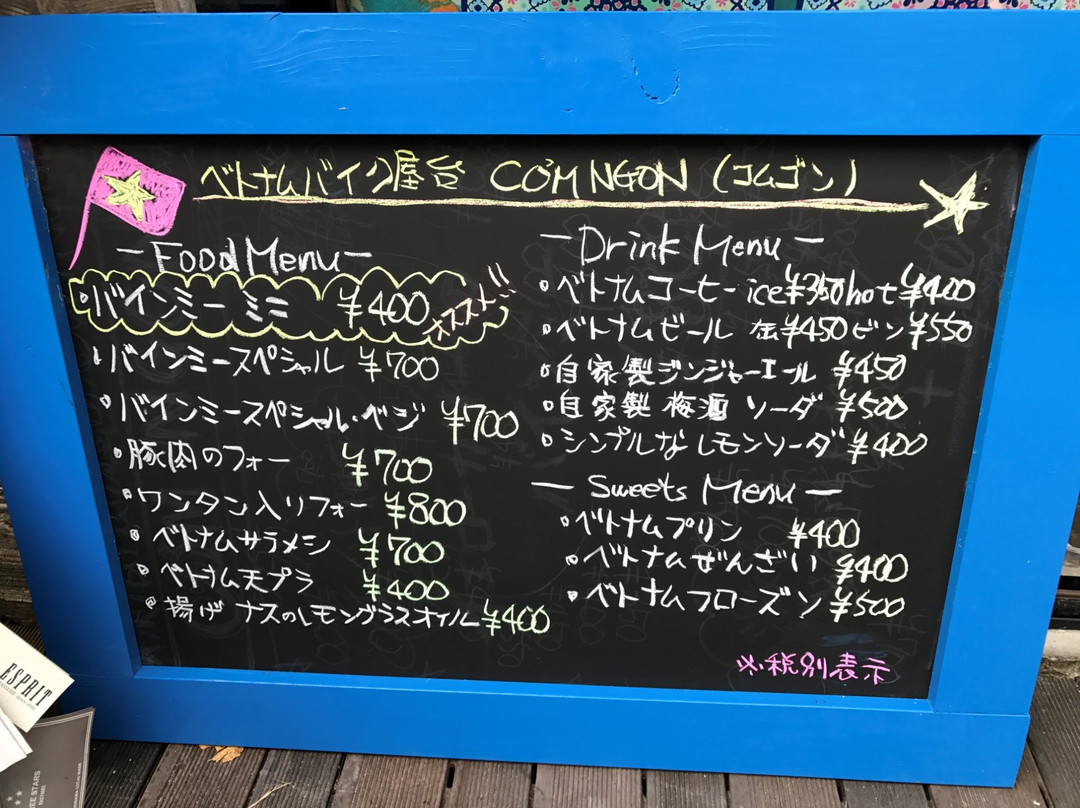 ベトナムバイク屋台 COM NGON (コムゴン)
ーFood Menuー
・バインミー ミニ ¥400 オススメ!!
・バインミースペシャル ¥700
・バインミースペシャル・ベジ ¥700
・豚肉のフォー ¥700
・ワンタン入リフォー ¥800
・ベトナムサラメシ ¥700
・ベトナム天プラ ¥400
・揚げナスのレモングラスオイル ¥400
ーDrink Menuー
・ベトナムコーヒー ice¥350 hot ¥400
・ベトナムビール 缶¥450 ビン¥550
・自家製ジンジャーエール ¥450
・自家製 梅酒 ソーダ ¥500
・シンプルなレモンソーダ ¥400
ー Sweets Menu ー
・ベトナムプリン ¥400
・ベトナムぜんざい ¥400
・ベトナムフローズン ¥500
※税別表示
ESPRIT